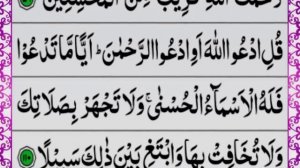 رَحْمَتَ اللّٰهِ قَرِيْبٌ مِّنَ الْمُحْسِنِيْنَ
قُلِ ادْعُوا اللّٰهَ اَوِ ادْعُوا الرَّحْمٰنَ ؕ اَيًّا مَّا تَدْعُوْا
فَلَهُ الْاَسْمَآءُ الْحُسْنٰى ۚ وَلَا تَجْهَرْ بِصَلَاتِكَ
وَلَا تُخَافِتْ بِهَا وَابْتَغِ بَيْنَ ذٰلِكَ سَبِيْلًا